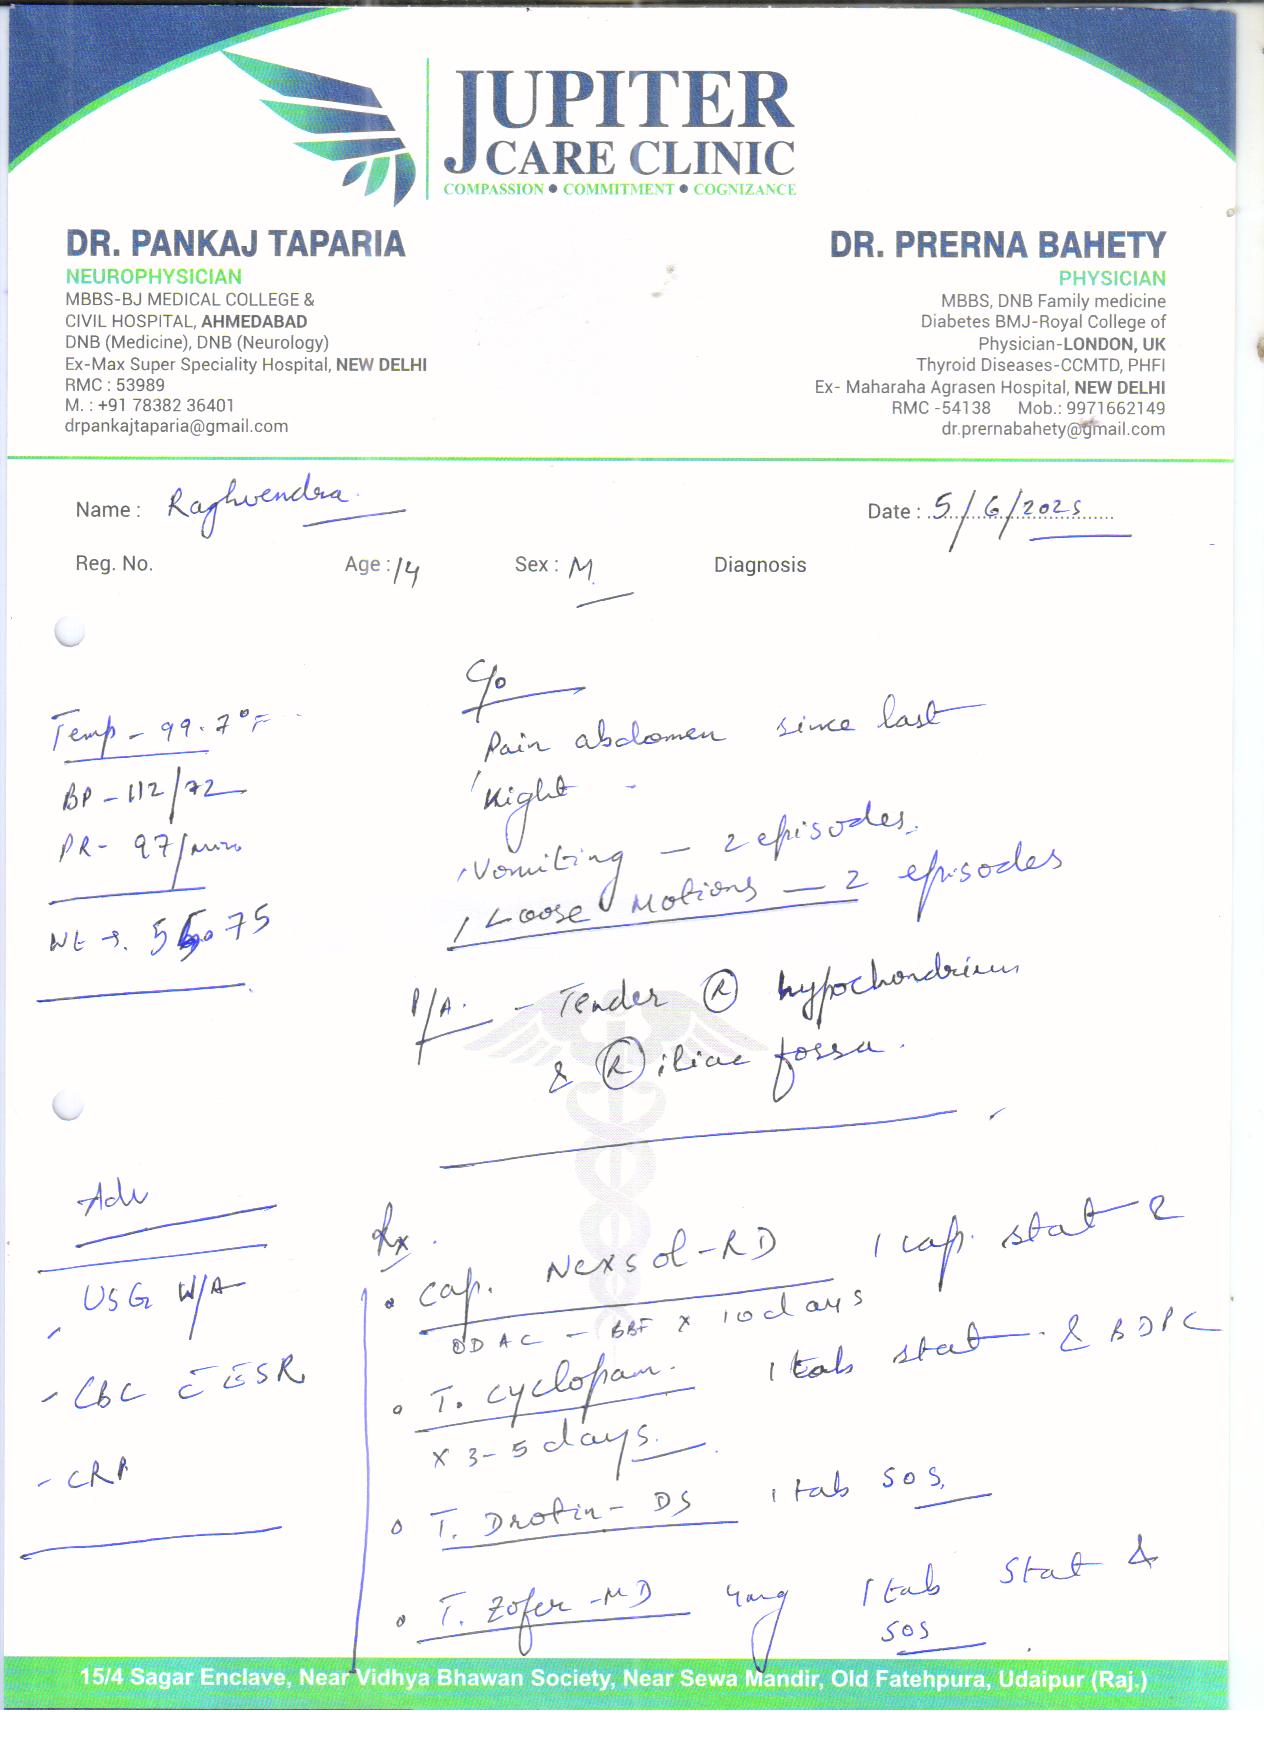 JUPITER
CARE CLINIC
COMPASSION ● COMMITMENT ● COGNIZANCE
DR. PANKAJ TAPARIA
NEUROPHYSICIAN
MBBS-BJ MEDICAL COLLEGE &
CIVIL HOSPITAL, AHMEDABAD
DNB (Medicine), DNB (Neurology)
Ex-Max Super Speciality Hospital, NEW DELHI
RMC : 53989
M. : +91 78382 36401
drpankajtaparia@gmail.com
DR. PRERNA BAHETY
PHYSICIAN
MBBS, DNB Family medicine
Diabetes BMJ-Royal College of
Physician-LONDON, UK
Thyroid Diseases-CCMTD, PHFI
Ex- Maharaha Agrasen Hospital, NEW DELHI
RMC -54138 Mob.: 9971662149
dr.prernabahety@gmail.com
Name : Raghvendra Date : 5/6/2025
Reg. No. Age : 14 Sex : M Diagnosis
Temp - 99.7°F
BP - 112/72
PR - 97/min
Wt → 55.75
C/o
Pain abdomen since last
Night
Vomiting - 2 episodes.
Loose Motions - 2 episodes
P/A. - Tender (R) hypochondrium
& (R) iliac fossa.
Adv
USG W/A
- CBC c̄ ESR
- CRP
Rx
• Cap. Nexsol-RD 1 cap. stat &
OD AC - BBF x 10 days
• T. Cyclopam. 1 tab stat & BDPC
x 3-5 days.
• T. Drotin-DS 1 tab SOS.
• T. Zofer-MD 4mg 1 tab stat &
SOS
15/4 Sagar Enclave, Near Vidhya Bhawan Society, Near Sewa Mandir, Old Fatehpura, Udaipur (Raj.)